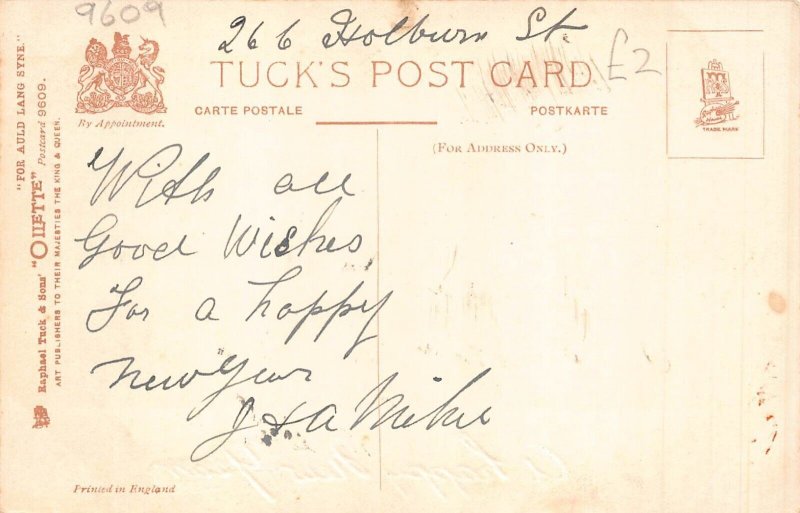 9609
266 Holburn St
£2
TUCK'S POST CARD
CARTE POSTALE
POSTKARTE
(FOR ADDRESS ONLY.)
By Appointment.
TRADE MARK
"FOR AULD LANG SYNE."
Raphael Tuck & Sons' "OILETTE" Postcard 9609.
ART PUBLISHERS TO THEIR MAJESTIES THE KING & QUEEN.
With all
Good Wishes
For a happy
New Year
J & A Milne
A happy New Year
Printed in England